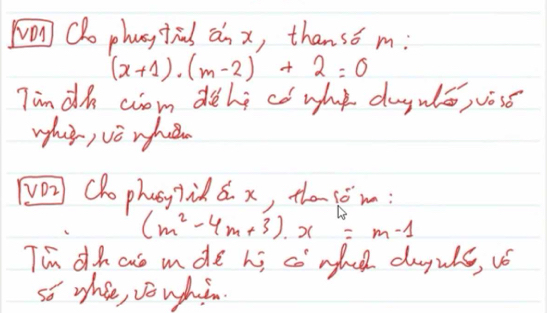 VD1 Cho phương trình ẩn x, tham số m:
(x+1).(m-2) + 2 = 0
Tìm đk của m để hệ có nghiệm duy nhất, vô số
nghiệm, vô nghiệm
VD2 Cho phương trình ẩn x, tham số m:
(m²-4m+3).x = m-1
Tìm đk của m để hệ có nghiệm duy nhất, vô
số nghiệm, vô nghiệm.